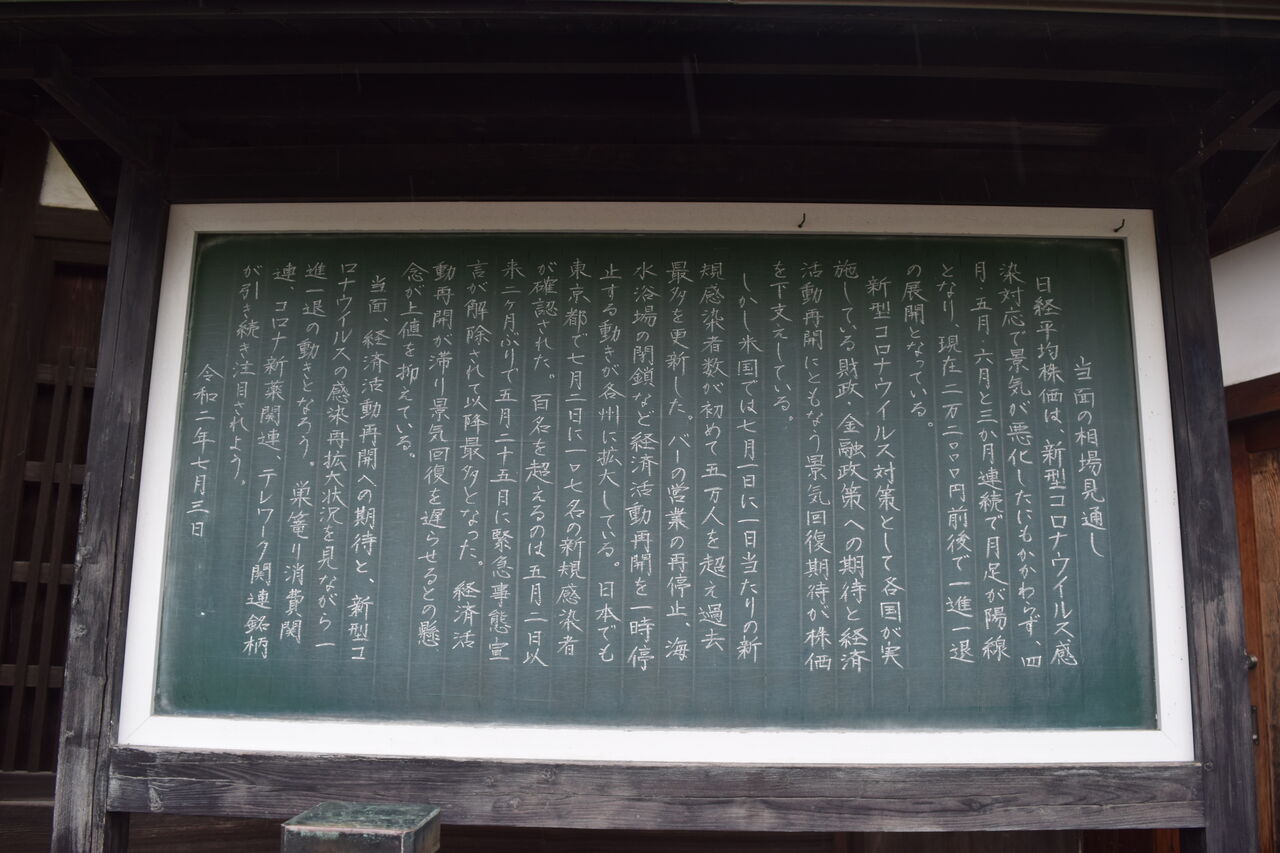 当面の相場見通し
日経平均株価は、新型コロナウイルス感
染対応で景気が悪化したにもかかわらず、四
月・五月・六月と三か月連続で月足が陽線
となり、現在二万二〇〇〇円前後で一進一退
の展開となっている。
新型コロナウイルス対策として各国が実
施している財政、金融政策への期待と経済
活動再開にともなう景気回復期待が株価
を下支えしている。
しかし米国では七月一日に一日当たりの新
規感染者数が初めて五万人を超え過去
最多を更新した。バーの営業の再停止、海
水浴場の閉鎖など経済活動再開を一時停
止する動きが各州に拡大している。日本でも
東京都で七月二日に一〇七名の新規感染者
が確認された。百名を超えるのは五月二日以
来二ヶ月ぶりで五月二十五日に緊急事態宣
言が解除されて以降最多となった。経済活
動再開が滞り景気回復を遅らせるとの懸
念が上値を抑えている。
当面、経済活動再開への期待と、新型コ
ロナウイルスの感染再拡大状況を見ながら一
進一退の動きとなろう。巣篭り消費関
連、コロナ新薬関連、テレワーク関連銘柄
が引き続き注目されよう。
令和二年七月三日